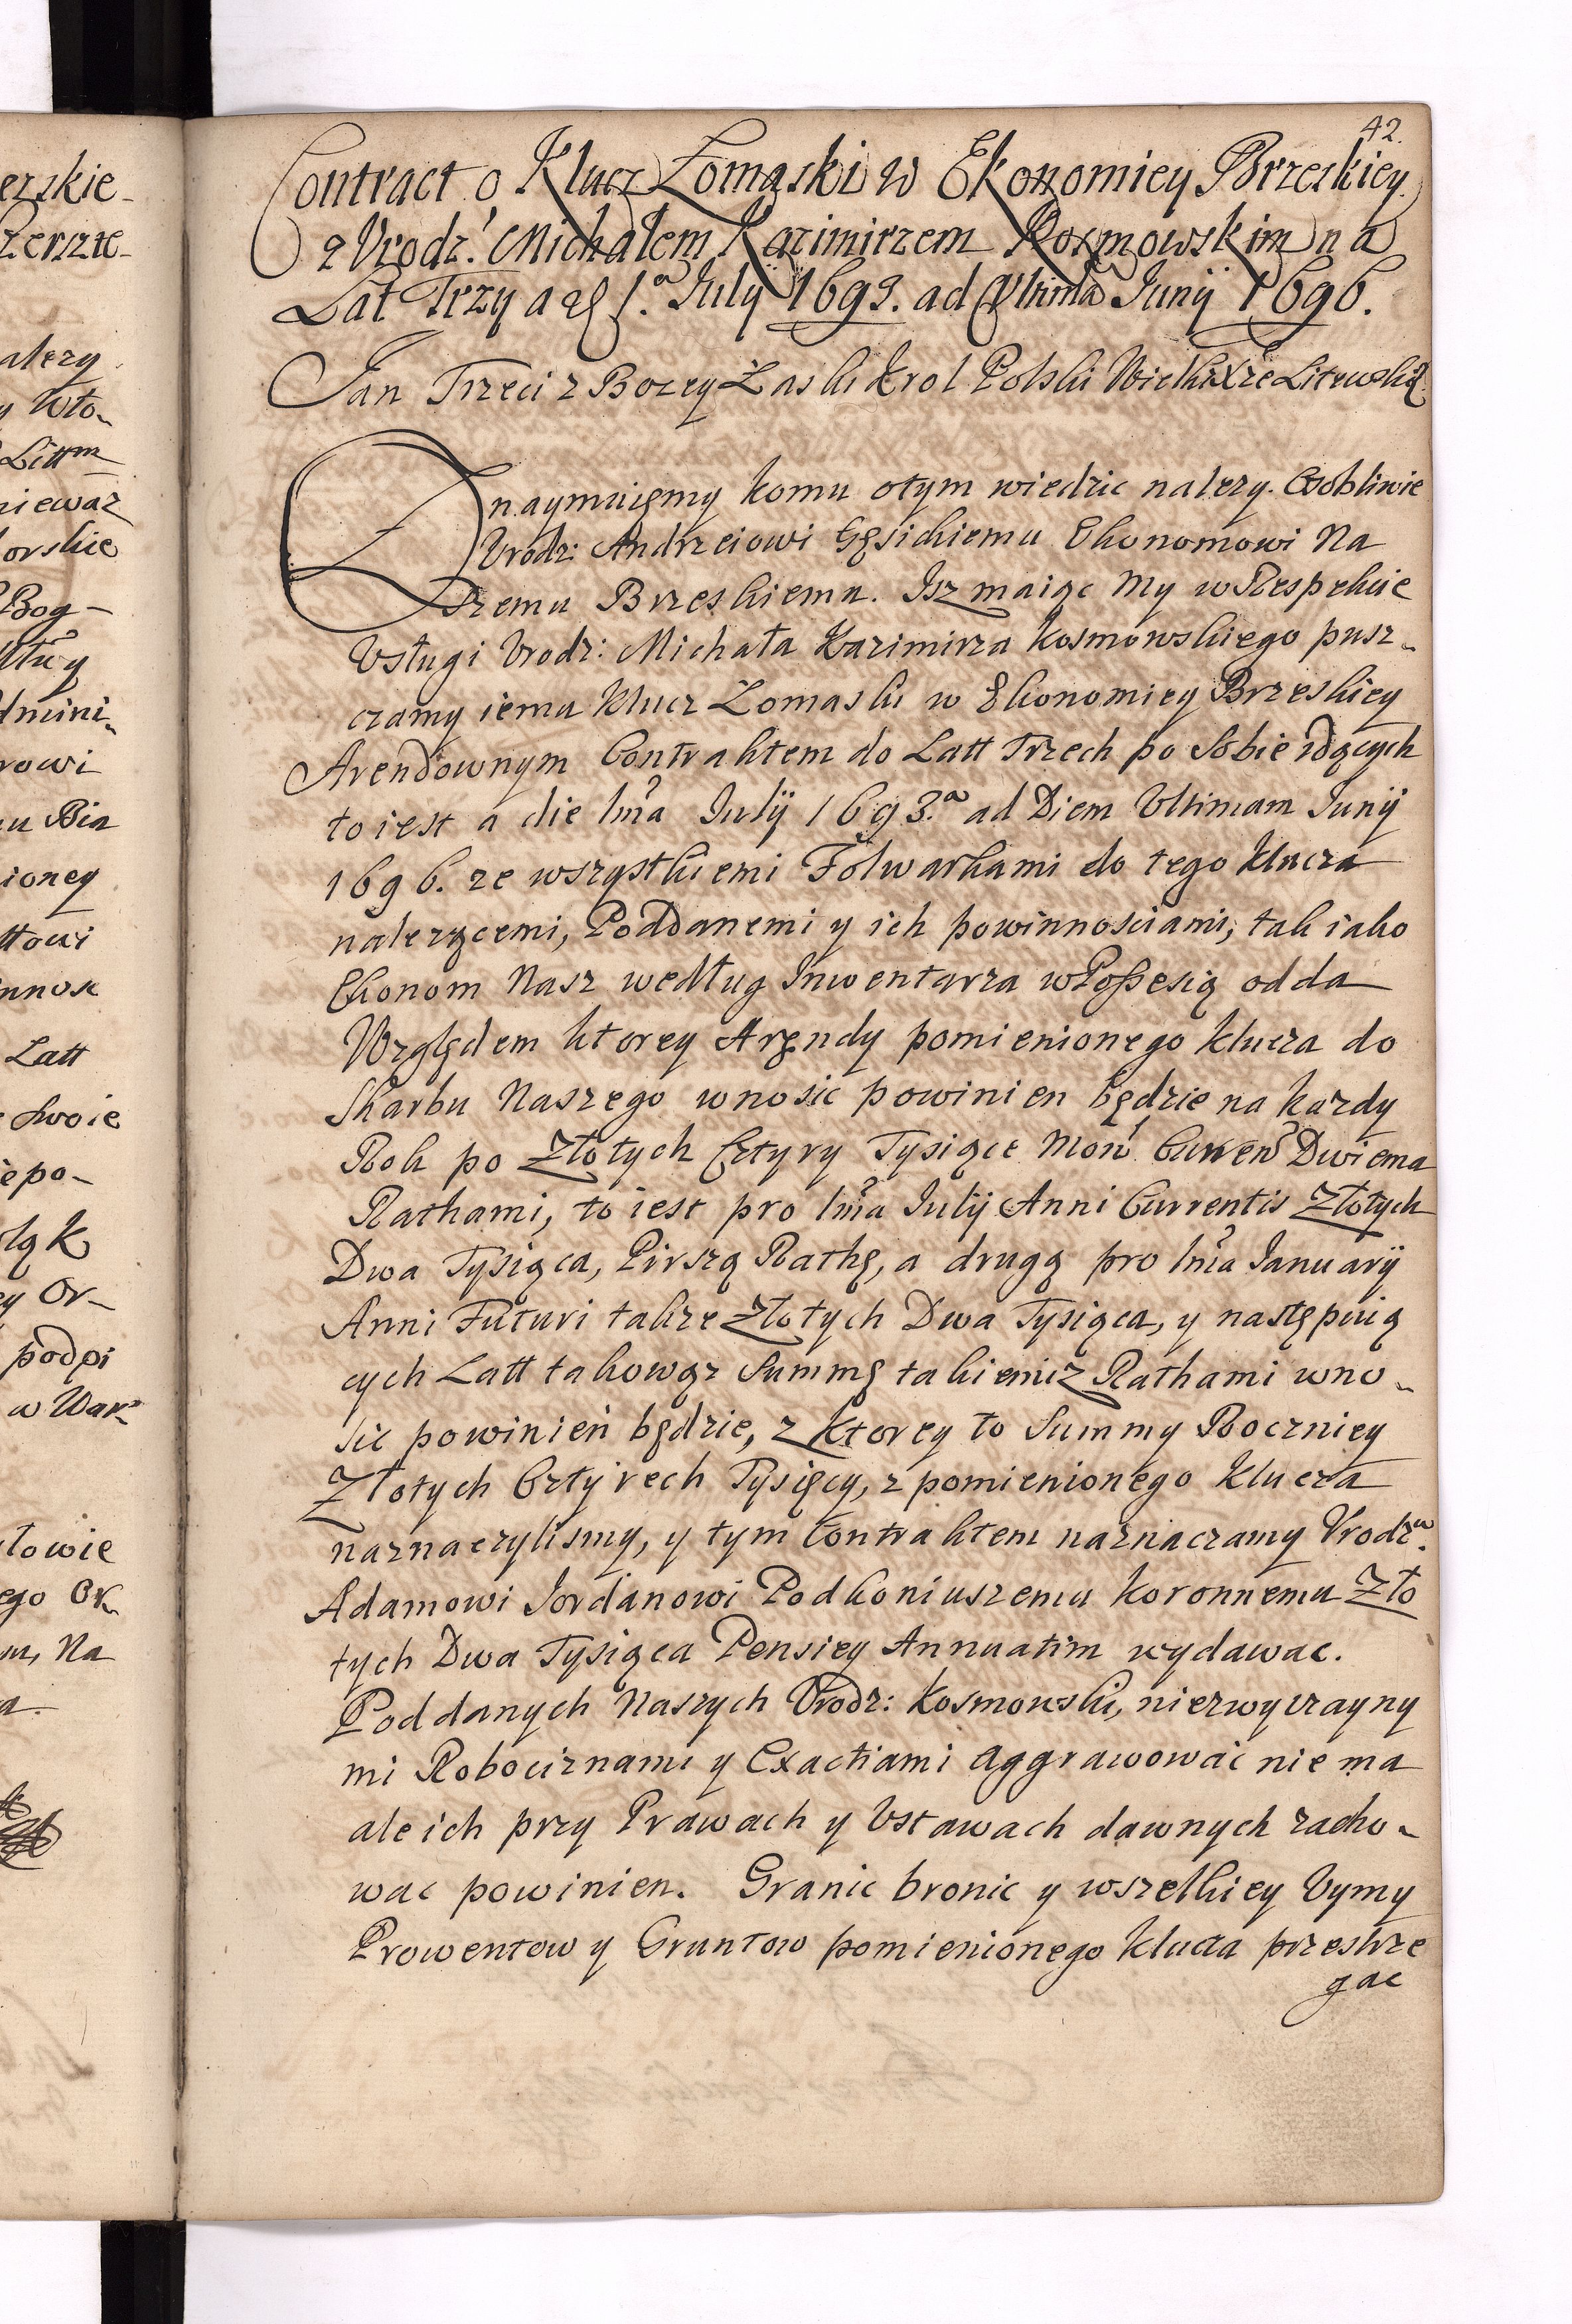 42.
Contract o Klucz Łomaski w Ekonomiey Brzeskiey
z Vrodz: Michałem Kazimirzem Kosmowskim na
Lat Trzy a 1.a Julÿ 1693. ad Vltima Junÿ 1696.
Jan Trzeci z Bozey Łaski Krol Polski Wielki Xże Litewski
Znaymuięmy komu otym wiedzic nalezy. Osobliwie
Vrodz: Andrzeiowi Gęsickiemu Ekonomowi Na
szemu Brzeskiemu. Isz maiąc My w Respekcie
Vsługi Vrodz: Michała Kazimirza Kosmowskiego pusz-
czamy iemu Klucz Łomaski w Ekonomiey Brzeskiey
Arendownym Contraktem do Latt Trzech po Sobie idących
to iest a die 1ma Julÿ 1693.a ad Diem Vltimam Junÿ
1696. ze wszystkiemi Folwarkami do tego Klucza
nalezącemi, Poddanemi y ich powinnosciami, tak iako
Ekonom Nasz według Inwentarza w Possesią odda
Względem ktorey Arędny pomienionego klucza do
Skarbu Naszego wnosic powinien będzie na kazdy
Rok po Złotych Cztyry Tysiące Mon Curren Dwiema
Rathami, to iest pro 1ma Julÿ Anni Currentis Złotych
Dwa Tysiąca, Pirszą Rathę, a drugą pro 1ma Januarÿ
Anni Futuri takze Złotych Dwa Tysiąca, y następuią
cych Latt takowąz Summę takiemiz Rathami wno-
sic powinień będzie, z Ktorey to Summy Roczniey
Złotych Cztyrech Tysięcy, z pomienionego Klucza
naznaczylismy, y tym Contraktem naznaczamy Vrodz.
Adamowi Jordanowi Podkoniuszemu Koronnemu Zło
tych Dwa Tysiąca Pensiey Annuatim wydawac.
Poddanych Naszych Vrodz: Kosmowski, niezwyczayny
mi Robociznami y Exactiami aggrawowac nie ma
ale ich przy Prawach y Vstawach dawnych zacho-
wac powinien. Granic bronic y wszelkiey Vymy
Prowentow y Gruntow pomienionego Klucza przestrze
gac